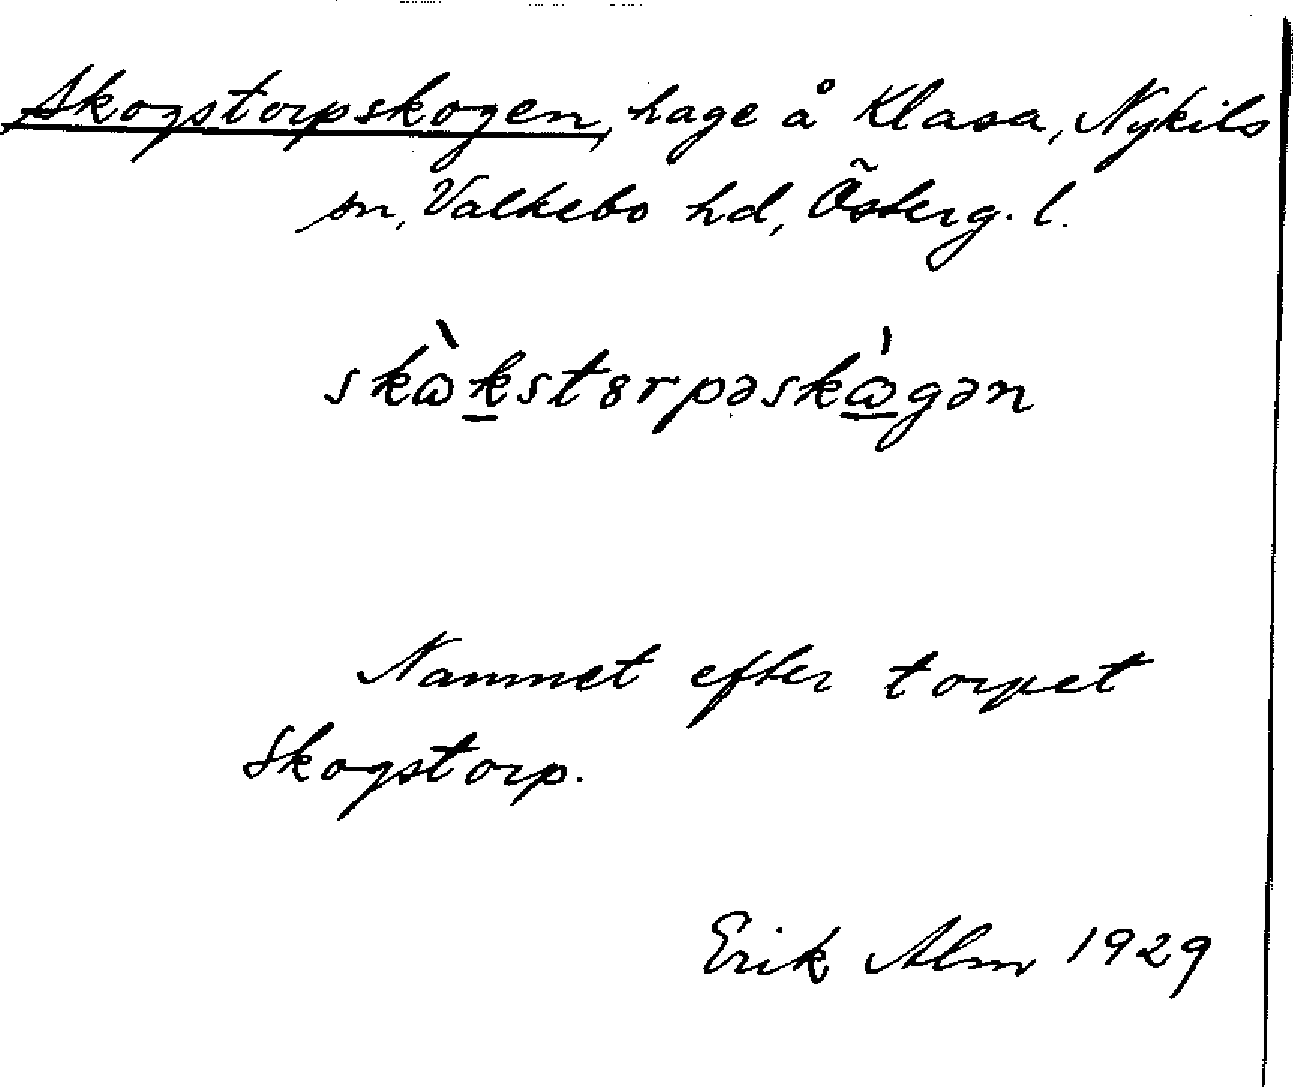 Skogstorpskogen, hage å Klasa, Nykils
sn, Valkebo hd, Österg. l.
skὼk̲st8rpəskɷ̲́gən
Namnet efter torpet
Skogstorp.
Erik Alm 1929